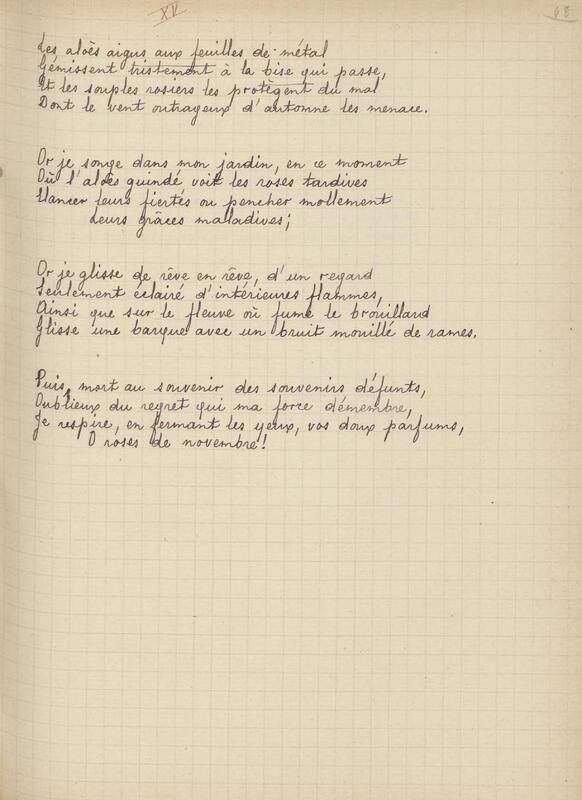 XV
68
Les aloès aigus aux feuilles de métal
Gémissent tristement à la bise qui passe,
Et les souples rosiers les protègent du mal
Dont le vent outrageux d'automne les menace.
Or je songe dans mon jardin, en ce moment
Où l'aloès guindé voit les roses tardives
Elancer leurs fiertés ou pencher mollement
Leurs grâces maladives;
Or je glisse de rêve en rêve, d'un regard
Seulement éclairé d'intérieures flammes,
Ainsi que sur le fleuve où fume le brouillard
Glisse une barque avec un bruit mouillé de rames.
Puis, mort au souvenir des souvenirs défunts,
Oublieux du regret qui ma force démembre,
Je respire, en fermant les yeux, vos doux parfums,
O roses de novembre!